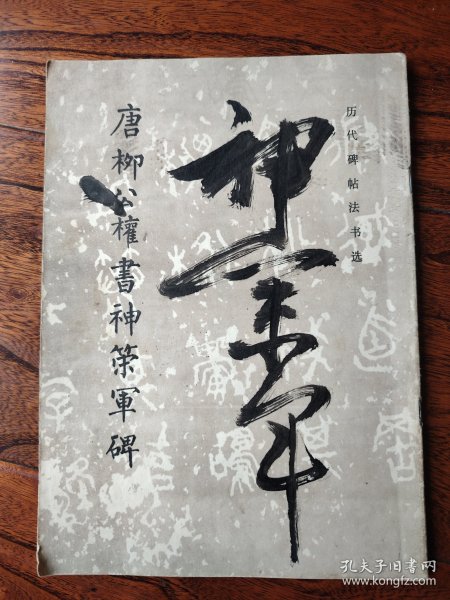 历代碑帖法书选
神策軍
唐柳公權書神策軍碑
孔夫子旧书网
www.kongfz.com